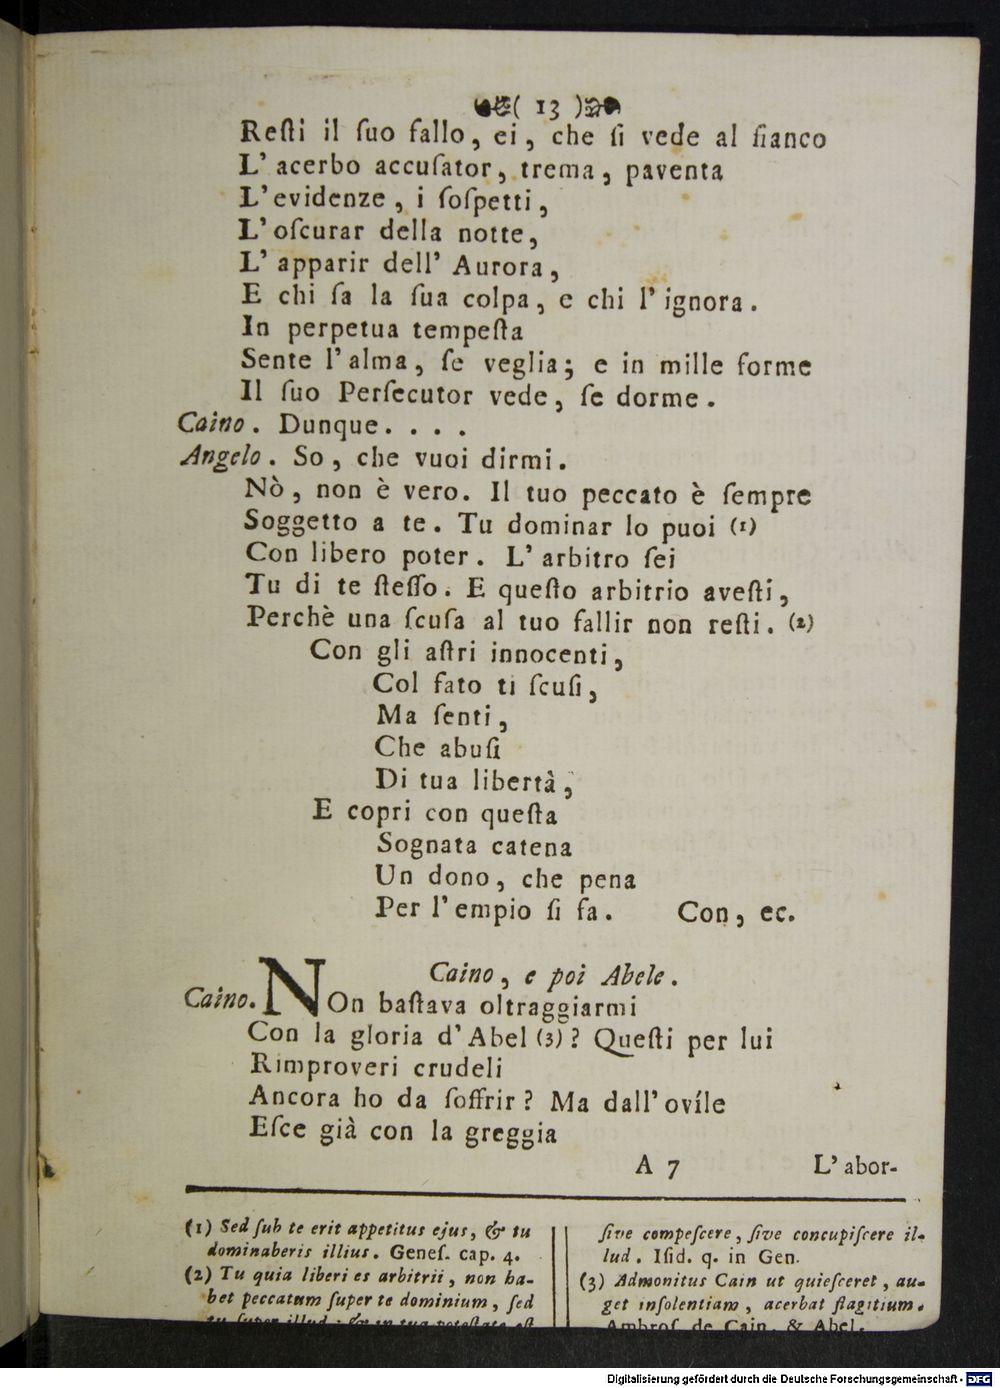 ( 13 )
Reſti il ſuo fallo, ei, che ſi vede al fianco
L' acerbo accuſator, trema, paventa
L'evidenze, i ſoſpetti,
L'oſcurar della notte,
L' apparir dell' Aurora,
E chi ſa la ſua colpa, e chi l' ignora.
In perpetua tempeſta
Sente l'alma, ſe veglia; e in mille forme
Il ſuo Perſecutor vede, ſe dorme.
Caino. Dunque. . . .
Angelo. So, che vuoi dirmi.
Nò, non è vero. Il tuo peccato è ſempre
Soggetto a te. Tu dominar lo puoi (1)
Con libero poter. L' arbitro ſei
Tu di te ſteſſo. E queſto arbitrio aveſti,
Perchè una ſcuſa al tuo fallir non reſti. (2)
Con gli aſtri innocenti,
Col fato ti ſcuſi,
Ma ſenti,
Che abuſi
Di tua libertà,
E copri con queſta
Sognata catena
Un dono, che pena
Per l'empio ſi fa. Con, ec.
Caino, e poi Abele.
Caino. NOn baſtava oltraggiarmi
Con la gloria d'Abel (3)? Queſti per lui
Rimproveri crudeli
Ancora ho da ſoffrir? Ma dall' ovíle
Eſce già con la greggia
A 7 L' abor-
(1) Sed ſub te erit appetitus ejus, & tu
dominaberis illius. Geneſ. cap. 4.
(2) Tu quia liberi es arbitrii, non ha-
bet peccatum ſuper te dominium, ſed
tu ſuper illud: & in tua poteſtate eſt
ſive compeſcere, ſive concupiſcere il-
lud. Iſid. q. in Gen.
(3) Admonitus Cain ut quieſceret, au-
get inſolentiam, acerbat flagitium.
Ambroſ. de Cain. & Abel.
Digitalisierung gefördert durch die Deutsche Forschungsgemeinschaft - DFG